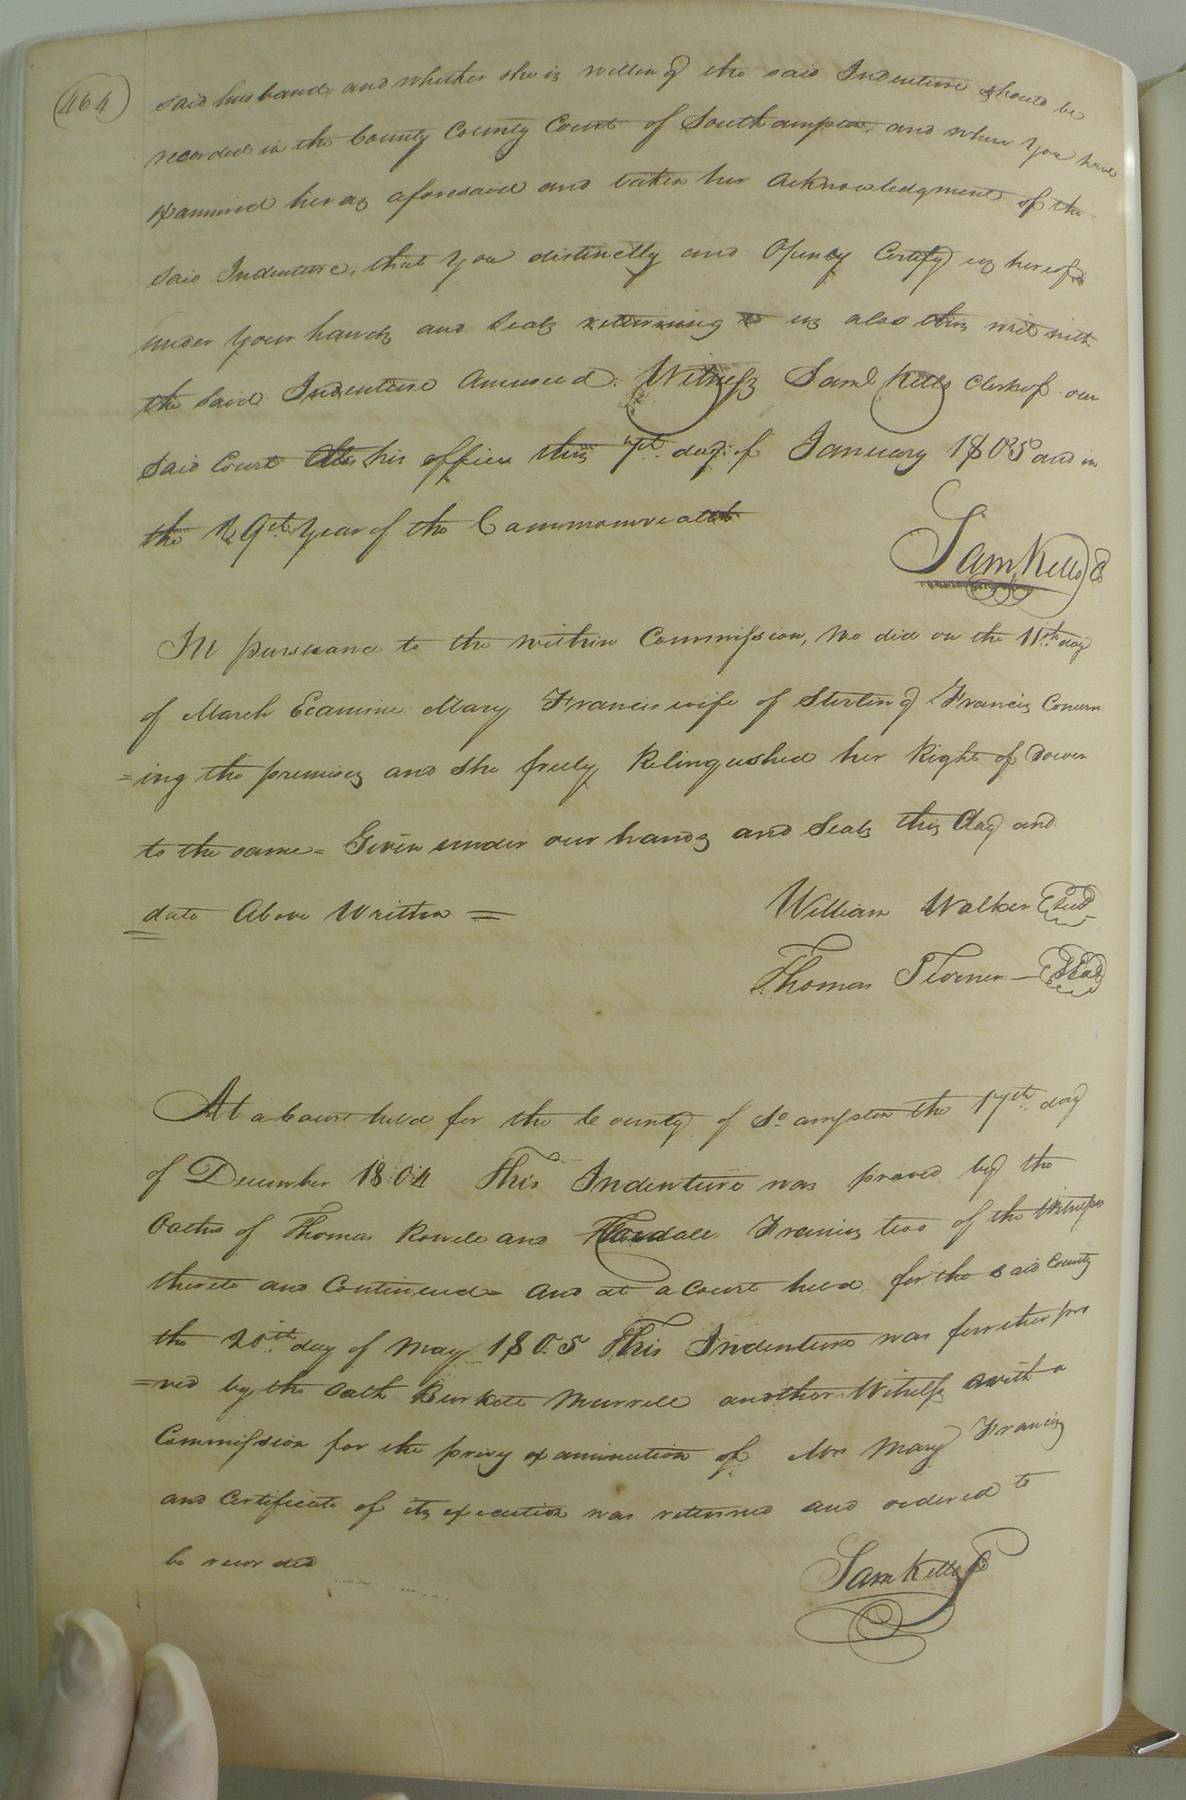 464
said husband, and whether she is willing the said Indenture should be
recorded in the County County Court of Southampton, and when you have
Examined her as aforesaid and taken her acknowledgment of the
said Indenture, that you distinctly and Openly Certify us hereof
under your hands and seals returning to us also this writ with
the said Indenture annexed. Witness Saml Kello Clerk of our
said Court at his office this 7th day of January 1805 and in
the 29th year of the Commonwealth
Sam Kello C
In pursuance to the within Commission, We did on the 11th day
of March Examine Mary Francis wife of Sterling Francis Concern
=ing the premises and she freely Relinquished her Right of Dower
to the same = Given under our hands and Seals this day and
date Above Written =
William Walker Seal
Thomas Turner - Seal
At a Court held for the County of So ampton the 17th day
of December 1804 This Indenture was proved by the
Oaths of Thomas Rowell and Francis two of the Witnesses
thereto and Continued = And at a Court held for the said County
the 20th day of May 1805 This Indenture was further pro
=ved by the Oath Burkett Murrell another Witness with a
Commission for the privy examination of Mrs Mary Francis
and Certificate of its execution was returned and ordered to
be recorded
Sam Kello C